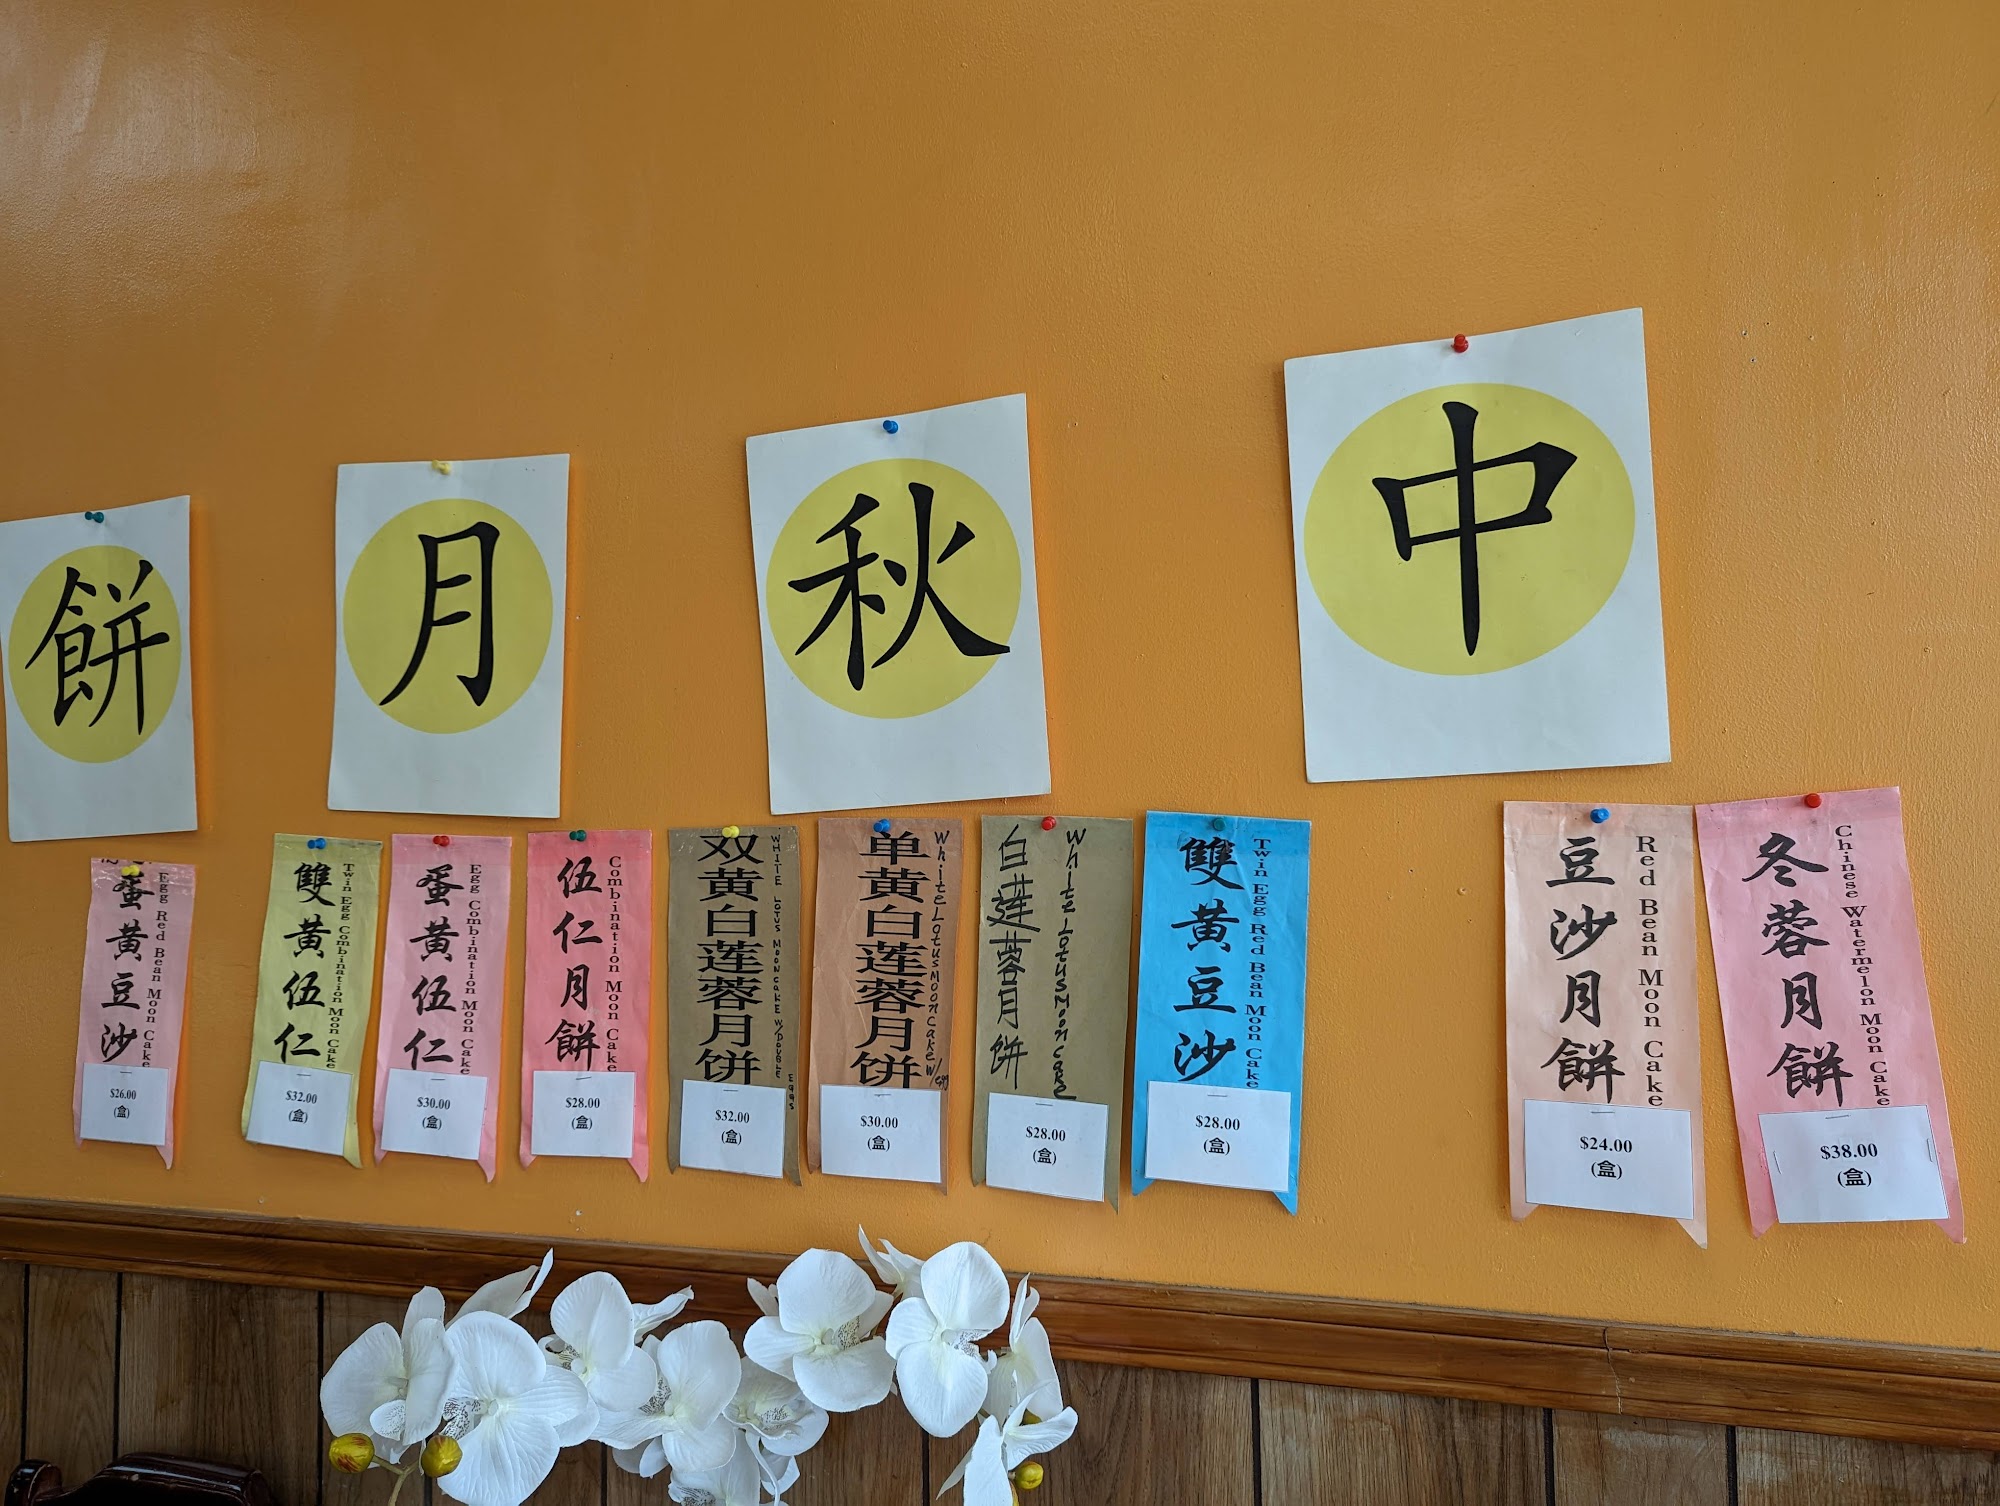 中
秋
月
餅
冬蓉月餅
Chinese Watermelon Moon Cake
$38.00
(盒)
豆沙月餅
Red Bean Moon Cake
$24.00
(盒)
雙黃豆沙
Twin Egg Red Bean Moon Cake
$28.00
(盒)
白莲蓉月饼
White Lotus Moon Cake
$28.00
(盒)
单黄白莲蓉月饼
White Lotus Moon Cake w/
$30.00
(盒)
双黄白莲蓉月饼
WHITE LOTUS MOON CAKE W/DOUBLE
Eggs
$32.00
(盒)
伍仁月餅
Combination Moon Cake
$28.00
(盒)
蛋黃伍仁
Egg Combination Moon Cake
$30.00
(盒)
雙黃伍仁
Twin Egg Combination Moon Cake
$32.00
(盒)
蛋黃豆沙
Egg Red Bean Moon Cake
$26.00
(盒)